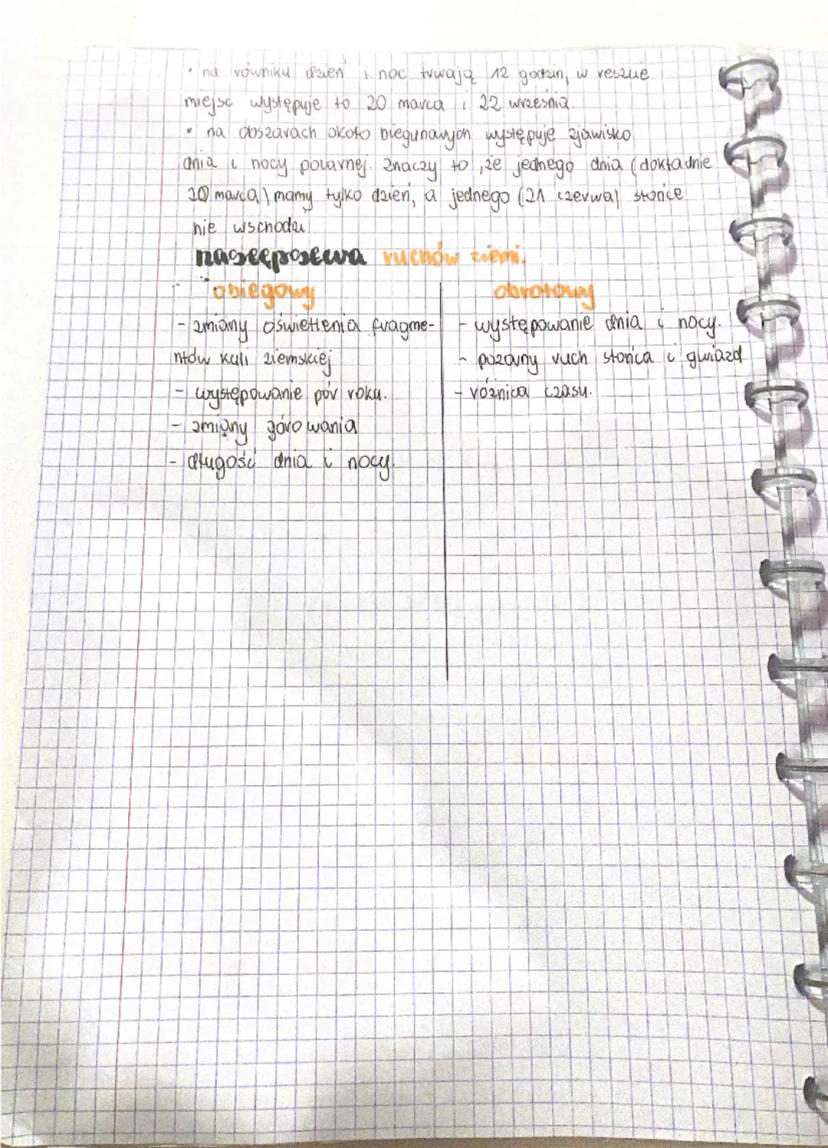 • na równiku dzień i noc trwają 12 godzin, w reszcie
miejsc występuje to 20 marca i 22 września.
• na obszarach około biegunowych występuje zjawisko
dnia i nocy polarnej. Znaczy to, że jednego dnia (dokładnie
20 marca) mamy tylko dzień, a jednego (21 czerwca) słońce
nie wschodzi
następstwa ruchów ziemi.
obiegowy obrotowy
- zmiany oświetlenia fragme- - występowanie dnia i nocy.
ntów kuli ziemskiej - pozorny ruch słońca i gwiazd
- występowanie pór roku. - różnica czasu.
- zmiany górowania
- długość dnia i nocy.